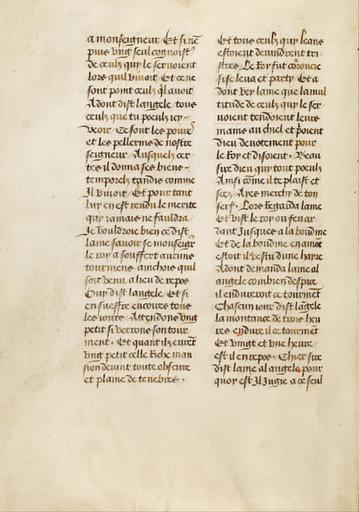 a monseigneur Et si ne
puis vng seul cognoistr̄
de ceulx qui le seruoient
lors quil viuoit Et ce ne
sont point ceulx q̄l auoit
Adont dist langele tous
ceulx que tu peculz cy
veoir Ce sont les poures
et les pellerins de nostre
seigneur Ausquelz cer
tes il donna ses biens
temporelz tandis comme
Il viuoit Et pour tant
luy en est rendu le merite
qui iamais ne fauldra
Je vouldroie bien ce dist
lame sauoir se monseigr̄
le roy a souffert aucuns
tourmens ainchois quil
soit venu a lieu de repos
Ouy dist langele Et si
en sueffre encores tous
les iours Attendons vng
petit si verrons son tour
ment Et quant ilz eurēt
vng petit celle Riche man
sion deuint toute obscure
et plaine de tenebres
Et tous ceulx quy leans
estoient deuindrent tri
stres Le Roy fut cōroucie
si se leua et party Et a
dont vey lame que la mul
titude de ceulx quy le ser
uoient tendoient leurs
mains au ciel et p̄oient
dieu deuotement pour
le Roy Et disoient Beau
sire dieu quy tout peculz
Ainsi cōme il te plaist et
sces Aies mercy de ton
serf Lors regarda lame
Et vist le roy ou feu ar
dant Jusques a la boudine
Et de la boudine en amōt
estoit il vestu dune haire
Adont demanda lame al
angele combien despace
il endureroit ce tourmēt
Chascun iour dist lāgele
la montance de trois heu
res endure il ce tourmēt
Et vingt et vne heure
est il en repos Chier sire
dist lame al angele pour
quoy est Il Jugie a ce seul